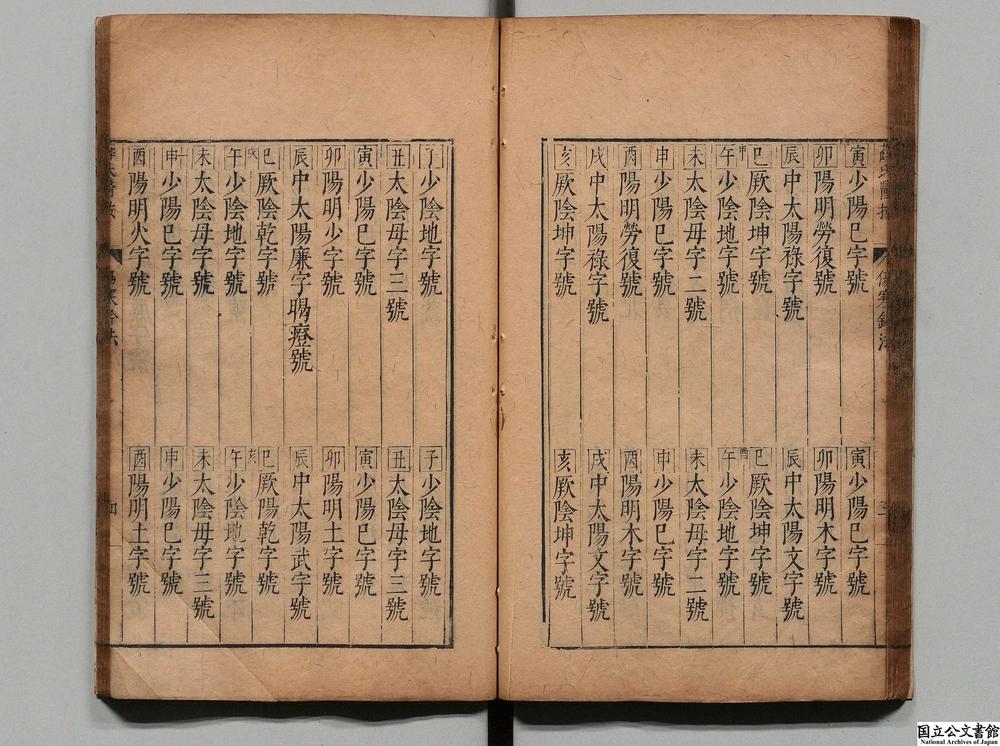 傷寒鈐法
三
寅少陽巳字號
卯陽明勞復號
辰中太陽祿字號
巳厥陰坤字號
申
午少陰地字號
未太陰母字二號
申少陽巳字號
酉陽明勞復號
戌中太陽祿字號
亥厥陰坤字號
寅少陽巳字號
卯陽明木字號
辰中太陽文字號
巳厥陰坤字號
酉
午少陰地字號
未太陰母字二號
申少陽巳字號
酉陽明木字號
戌中太陽文字號
亥厥陰坤字號
子少陰地字號
丑太陰母字三號
寅少陽巳字號
卯陽明少字號
辰中太陽廉字暍痙號
巳厥陰乾字號
戌
午少陰地字號
未太陰母字號
申少陽巳字號
酉陽明火字號
子少陰地字號
丑太陰母字三號
寅少陽巳字號
卯陽明土字號
辰中太陽武字號
巳厥陽乾字號
亥
午少陰地字號
未太陰母字三號
申少陽巳字號
酉陽明土字號
国立公文書館
National Archives of Japan